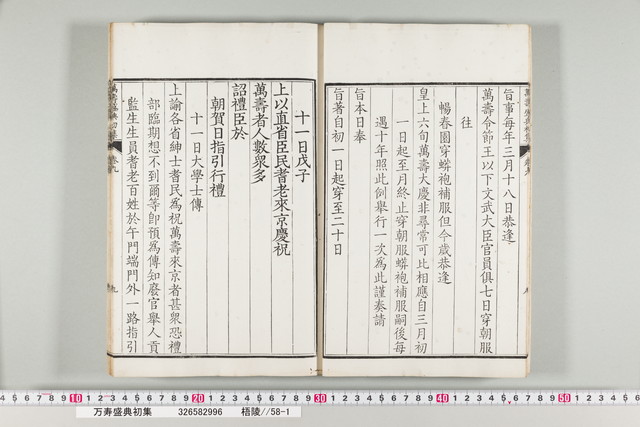 旨事每年三月十八日恭逢
萬壽令節王以下文武大臣官員俱七日穿朝服
往
暢春園穿蟒袍補服但今歲恭逢
皇上六旬萬壽大慶非尋常可比相應自三月初
一日起至月終止穿朝服蟒袍補服嗣後每
遇十年照此例舉行一次為此謹奏請
旨本日奉
旨著自初一日起穿至二十日
十一日戊子
上以直省臣民耆老來京慶祝
萬壽者人數眾多
詔禮臣於
朝賀日指引行禮
十一日大學士傳
上諭各省紳士耆民為祝萬壽來京者甚眾恐禮
部臨期想不到爾等即預為傳知麼官舉人貢
監生生員耆老百姓於午門端門外一路指引
10 20 30 40 50 60
万寿盛典初集 326582996 梧陵//58-1